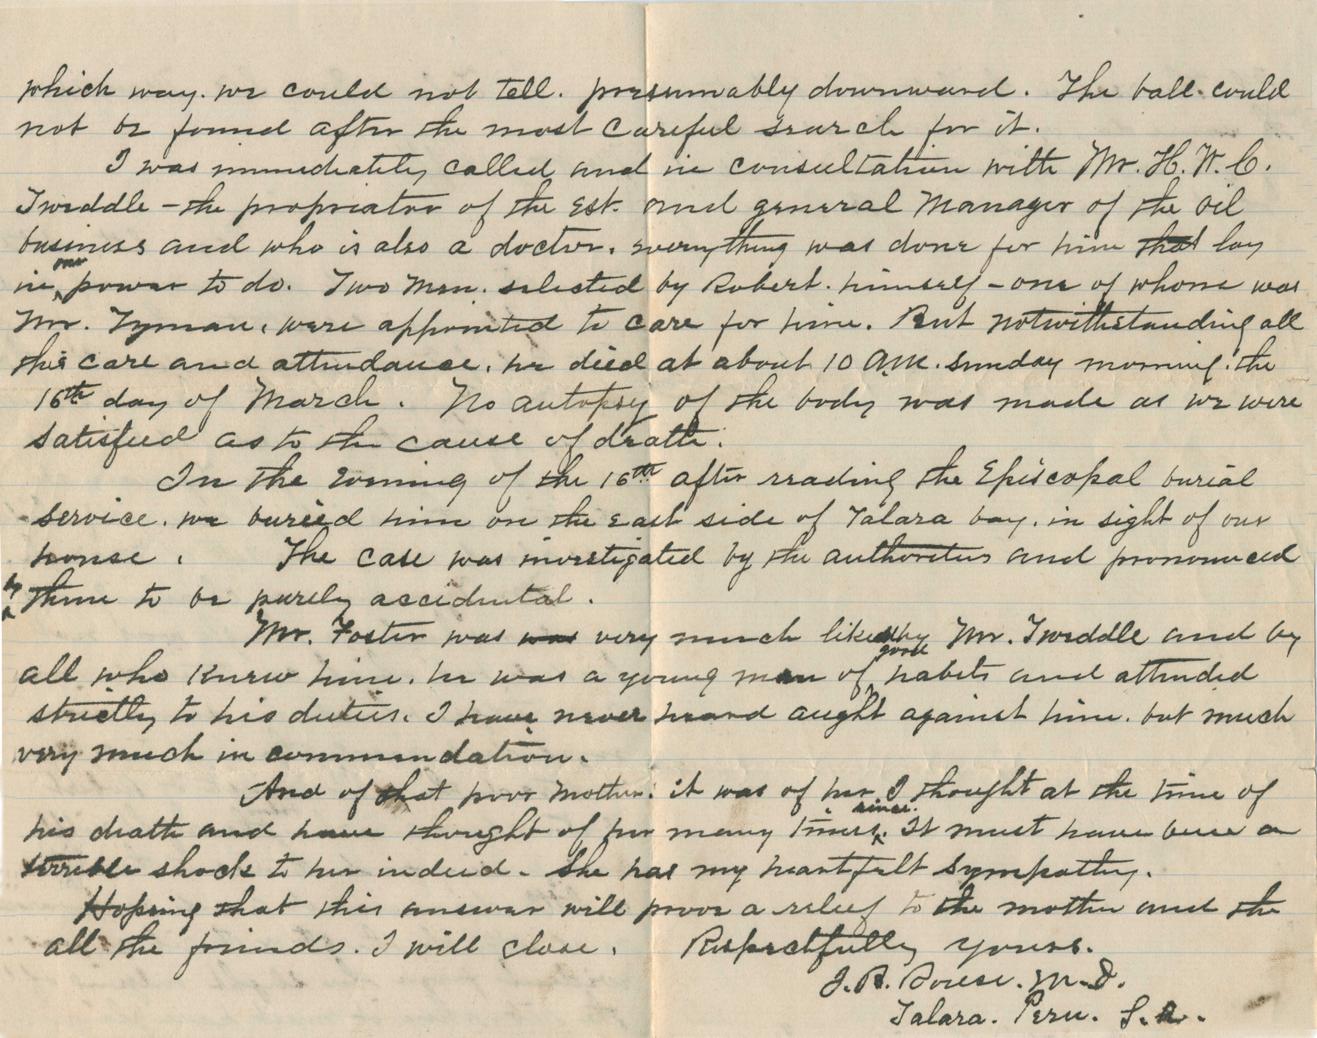 which way. we could not tell. presumably downward. The ball could
not be found after the most careful search for it.
I was immediately called and in consultation with Mr. H. W. C.
Tweddle - the propriator of the Est. and general Manager of the oil
business and who is also a doctor. everything was done for him that lay
in our power to do. Two Men. selected by Robert. himself - one of whome was
Mr. Tyman, were appointed to care for him. But notwithstanding all
this care and attendance. he died at about 10 A.M. sunday morning. the
16th day of March. No autopsy of the body was made as we were
satisfied as to the cause of death.
In the Evening of the 16th after reading the Episcopal burial
service. we buried him on the East side of Talara bay. in sight of our
house. The case was investigated by the authorities and pronounced
by them to be purely accidental.
Mr. Foster was was very much liked by Mr. Tweddle and by
all who knew him. he was a young man of good habits and attended
strictly to his duties. I have never heard aught against him. but much
very much in commendation.
And of that poor Mother. it was of her I thought at the time of
his death and have thought of her many times since. It must have been a
terrible shock to her indeed. She has my heartfelt sympathy.
Hoping that this answer will prove a relief to the mother and the
all the friends. I will close. Respectfully yours.
J. B. Rouse. M.D.
Talara. Peru. S.A.